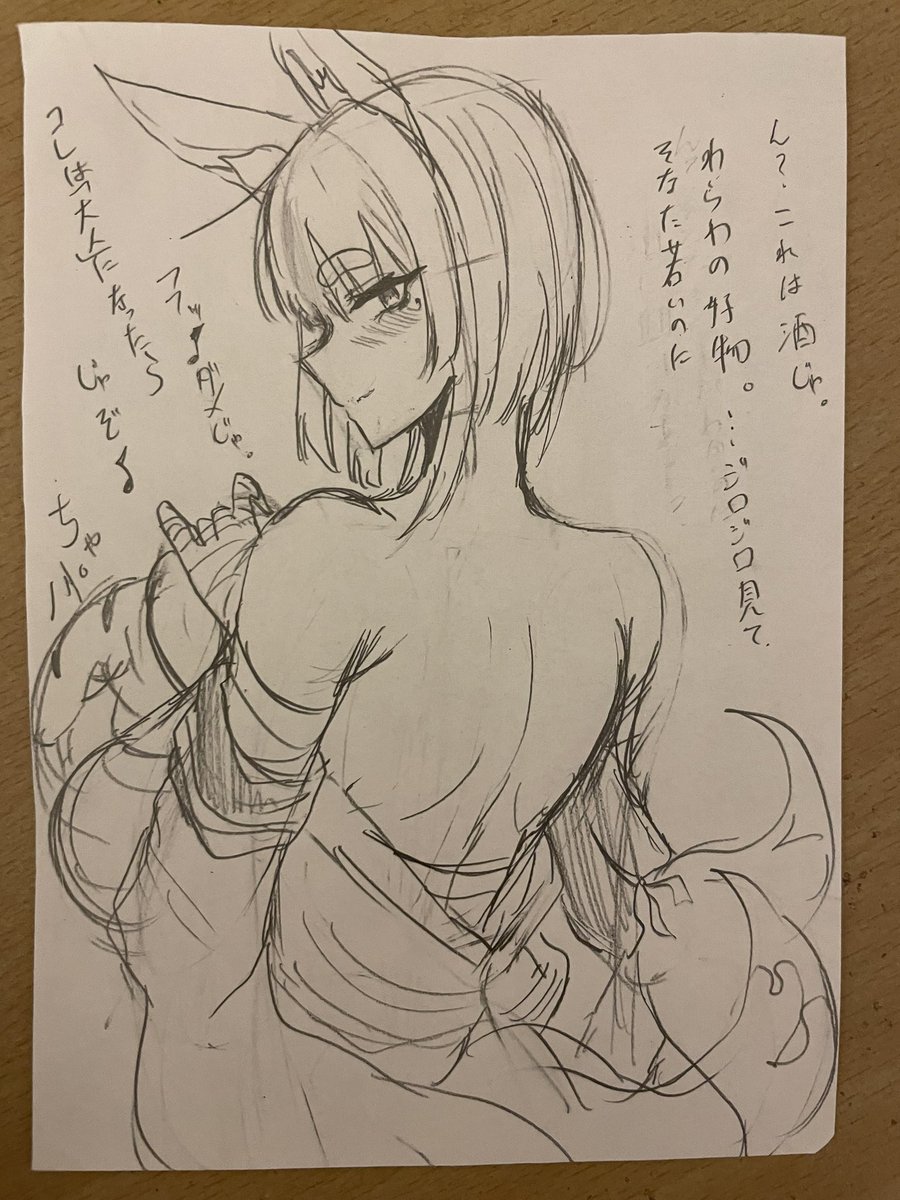 ん?これは酒じゃ。
わらわの好物。…ジロジロ見て
そなた若いのに
フフッ♪ダメじゃ。
コレは大人になったら
じゃぞ♪
ちゃ